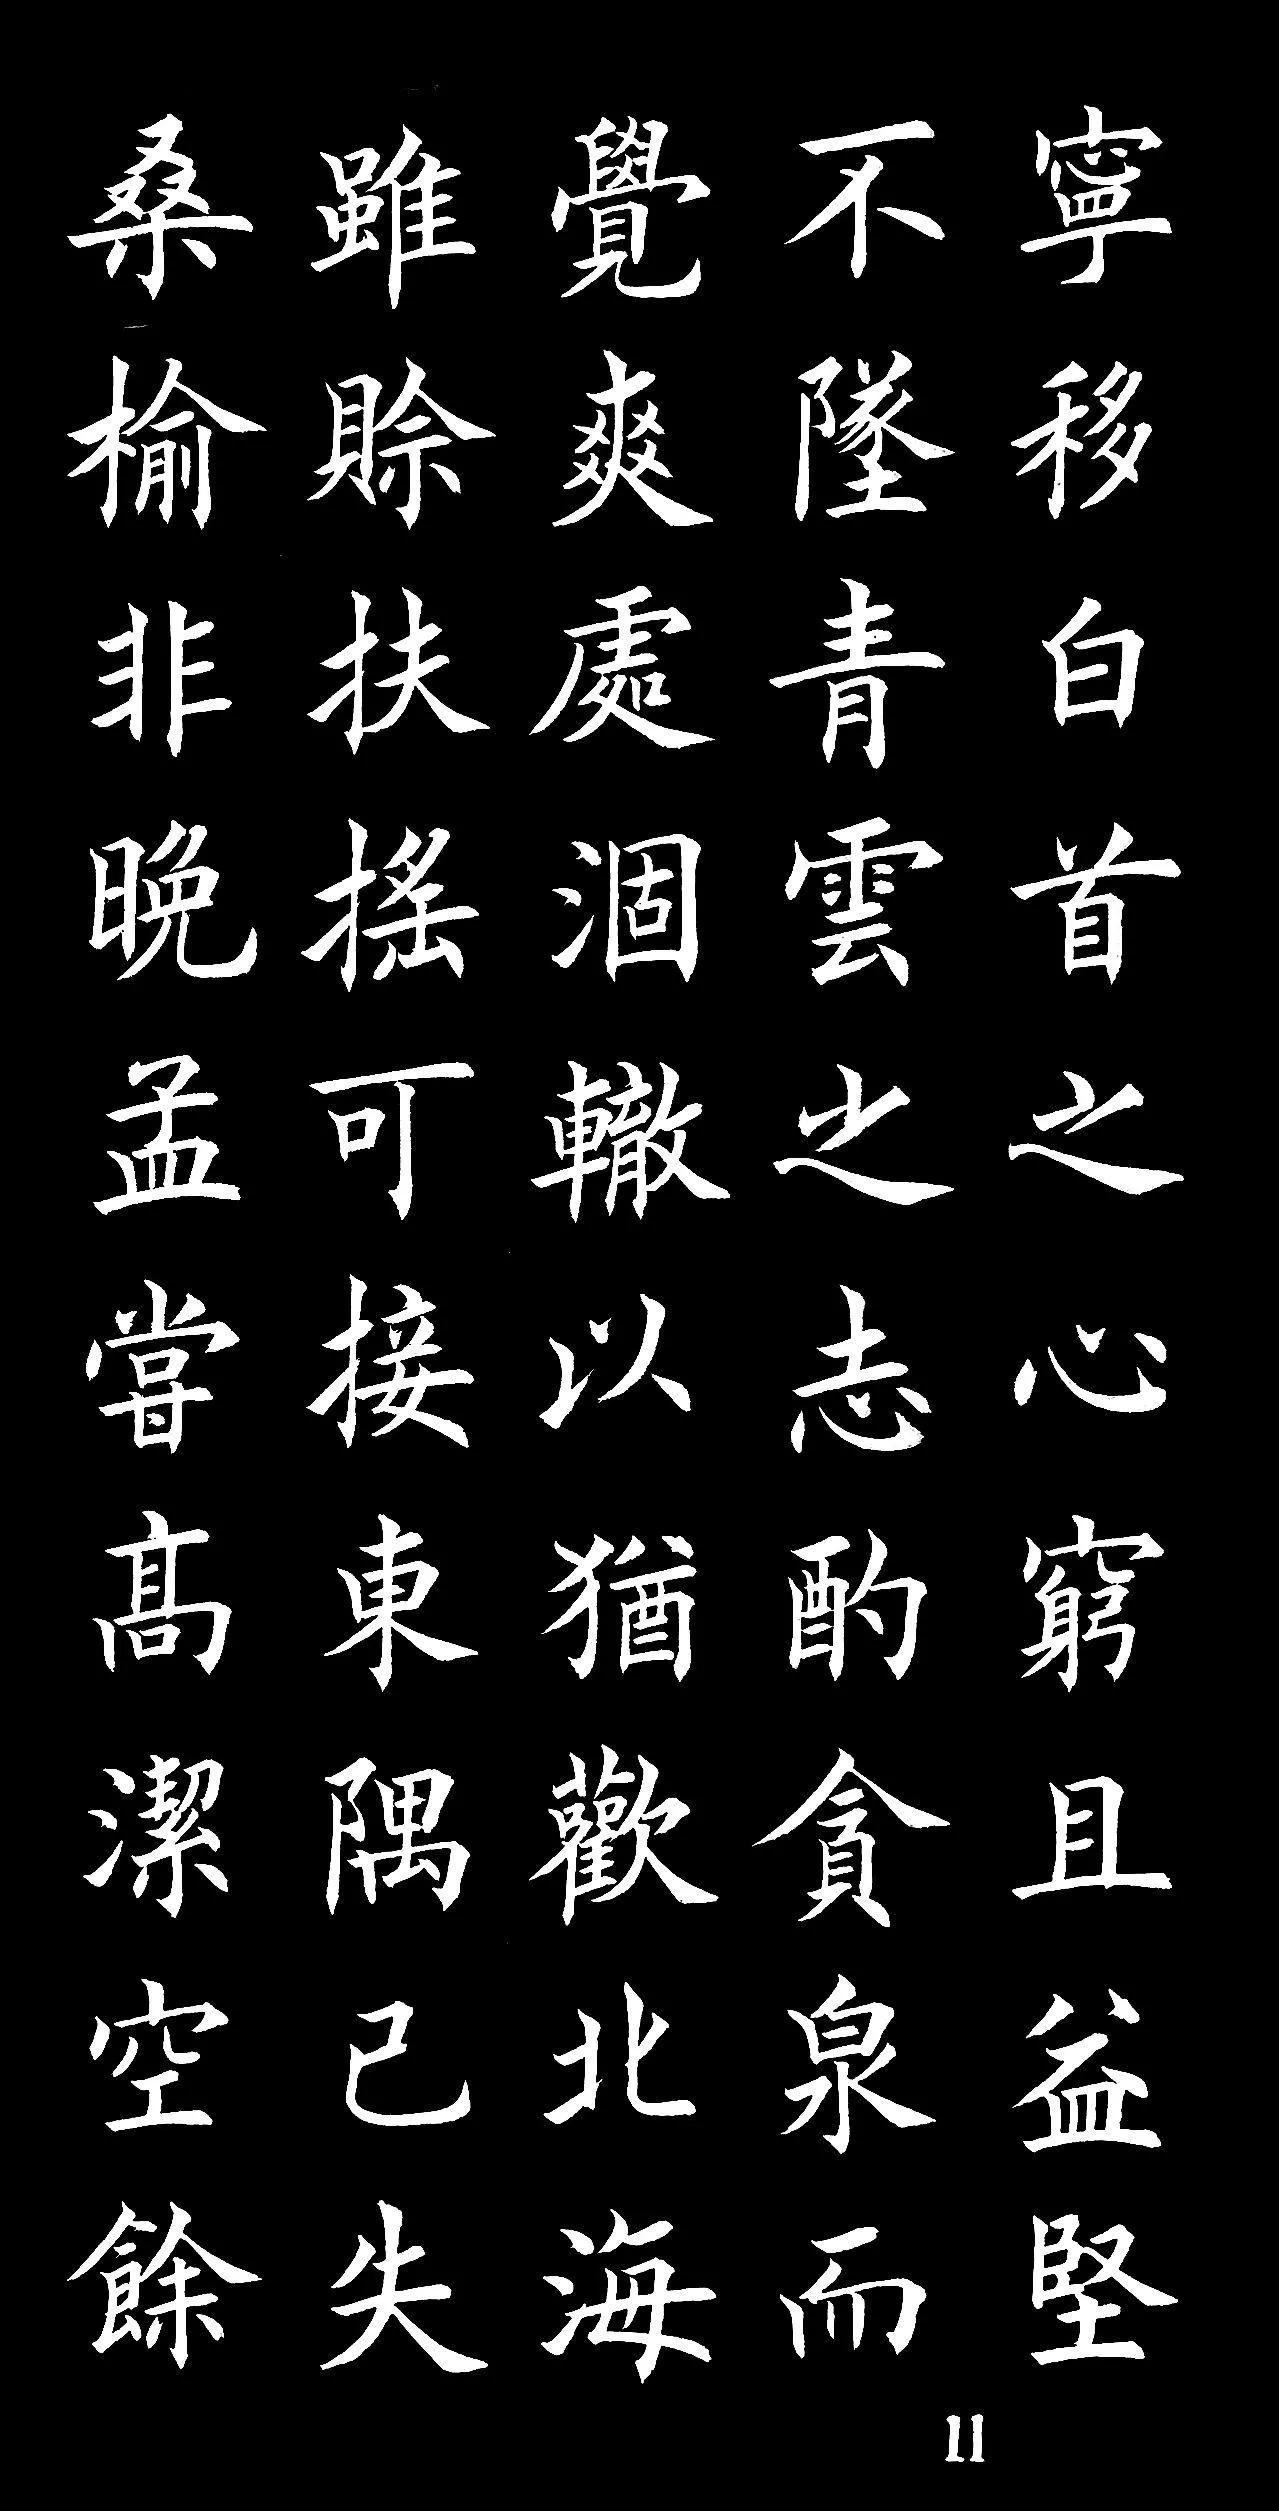 寧移白首之心窮且益堅
不墜青雲之志酌貪泉而
覺爽處涸轍以猶歡北海
雖賒扶搖可接東隅已失
桑榆非晚孟嘗高潔空餘
11